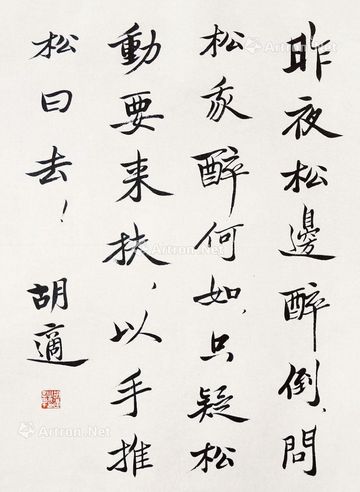 昨夜松邊醉倒，問
松我醉何如，只疑松
動要来扶，以手推
松曰去！ 胡適
Artron.Net
Artron.Net
Artron.Net